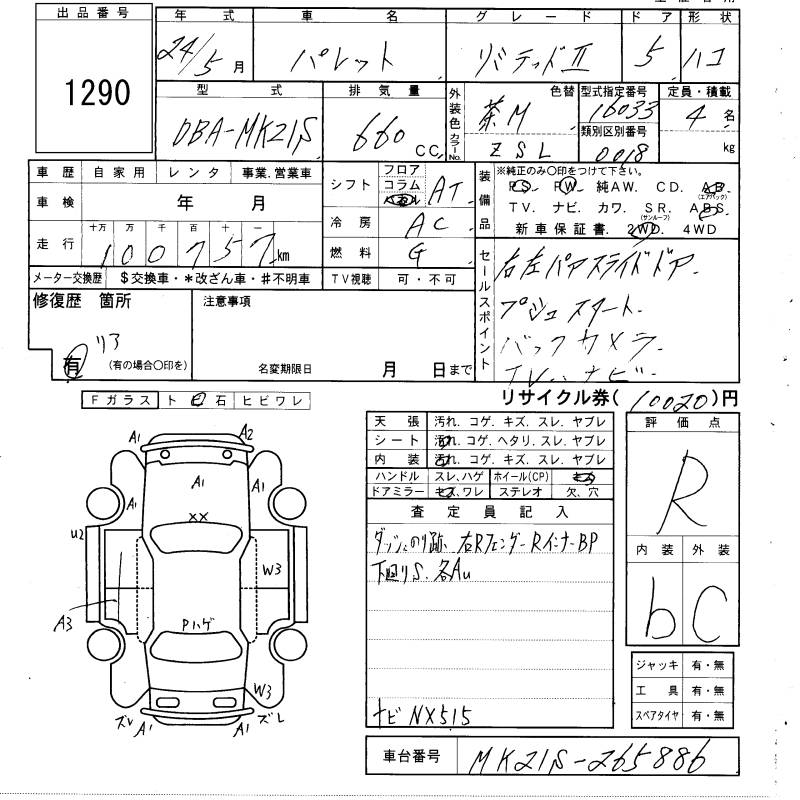 出品番号
1290
年 式
24/5 月
車 名
パレット
グ レ ー ド
リミテッドⅡ
ド ア
5
形 状
ハコ
型 式
DBA-MK21S
排 気 量
660 CC
外装色 カラーNo.
色替
茶M
ZSL
型式指定番号
16033
類別区別番号
0018
定員・積載
4 名
kg
車 歴 自 家 用 レ ン タ 事業.営業車
車 検 年 月
走 行
十万 万 千 百 十 一
100757 km
メーター交換歴 $交換車・*改ざん車・#不明車
シフト
フロア
コラム
AT
冷 房 AC
燃 料 G
TV視聴 可・不可
装備品
※純正のみ〇印をつけて下さい。
PS. PW. 純AW. CD. AB. (エアバック)
TV. ナビ. カワ. SR. (サンルーフ) ABS.
新車保証書. 2WD. 4WD
セールスポイント
右左パアスライドドア.
プシュスタート.
バックカメラ.
TV.ナビ.
修復歴 箇所
リア
有
(有の場合〇印を)
注意事項
名変期限日 月 日まで
リサイクル券( 10020 )円
Fガラス ト 日 石 ヒビワレ
A1 A2
A1
A1 A1
XX
U2
W3
A3
Pハゲ
W3
ズレ A1 A1 ズレ
天 張 汚れ. コゲ. キズ. スレ. ヤブレ
シート 汚れ. コゲ. ヘタリ. スレ. ヤブレ
内 装 汚れ. コゲ. キズ. スレ. ヤブレ
ハンドル スレ、ハゲ ホイール(CP) キズ
ドアミラー キズ、ワレ ステレオ 欠、穴
査 定 員 記 入
ダッシュのり跡. 右RフェンダーRインナーBP
下廻りS. 各AU
ナビ NX515
評 価 点
R
内 装 外 装
b C
ジャッキ 有・無
工 具 有・無
スペアタイヤ 有・無
車台番号 MK21S-265886